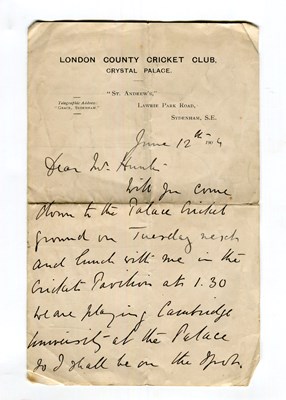 LONDON COUNTY CRICKET CLUB,
CRYSTAL PALACE.
"ST. ANDREW'S,"
Telegraphic Address:
LAWRIE PARK ROAD,
"GRACE, SYDENHAM."
SYDENHAM, S.E.
June 12th 1904
Dear Mr Hunt
Will you come
down to the Palace Cricket
ground on Tuesday next
and lunch with me in the
Cricket Pavilion at 1.30
We are playing Cambridge
University at the Palace
so I shall be on the spot.